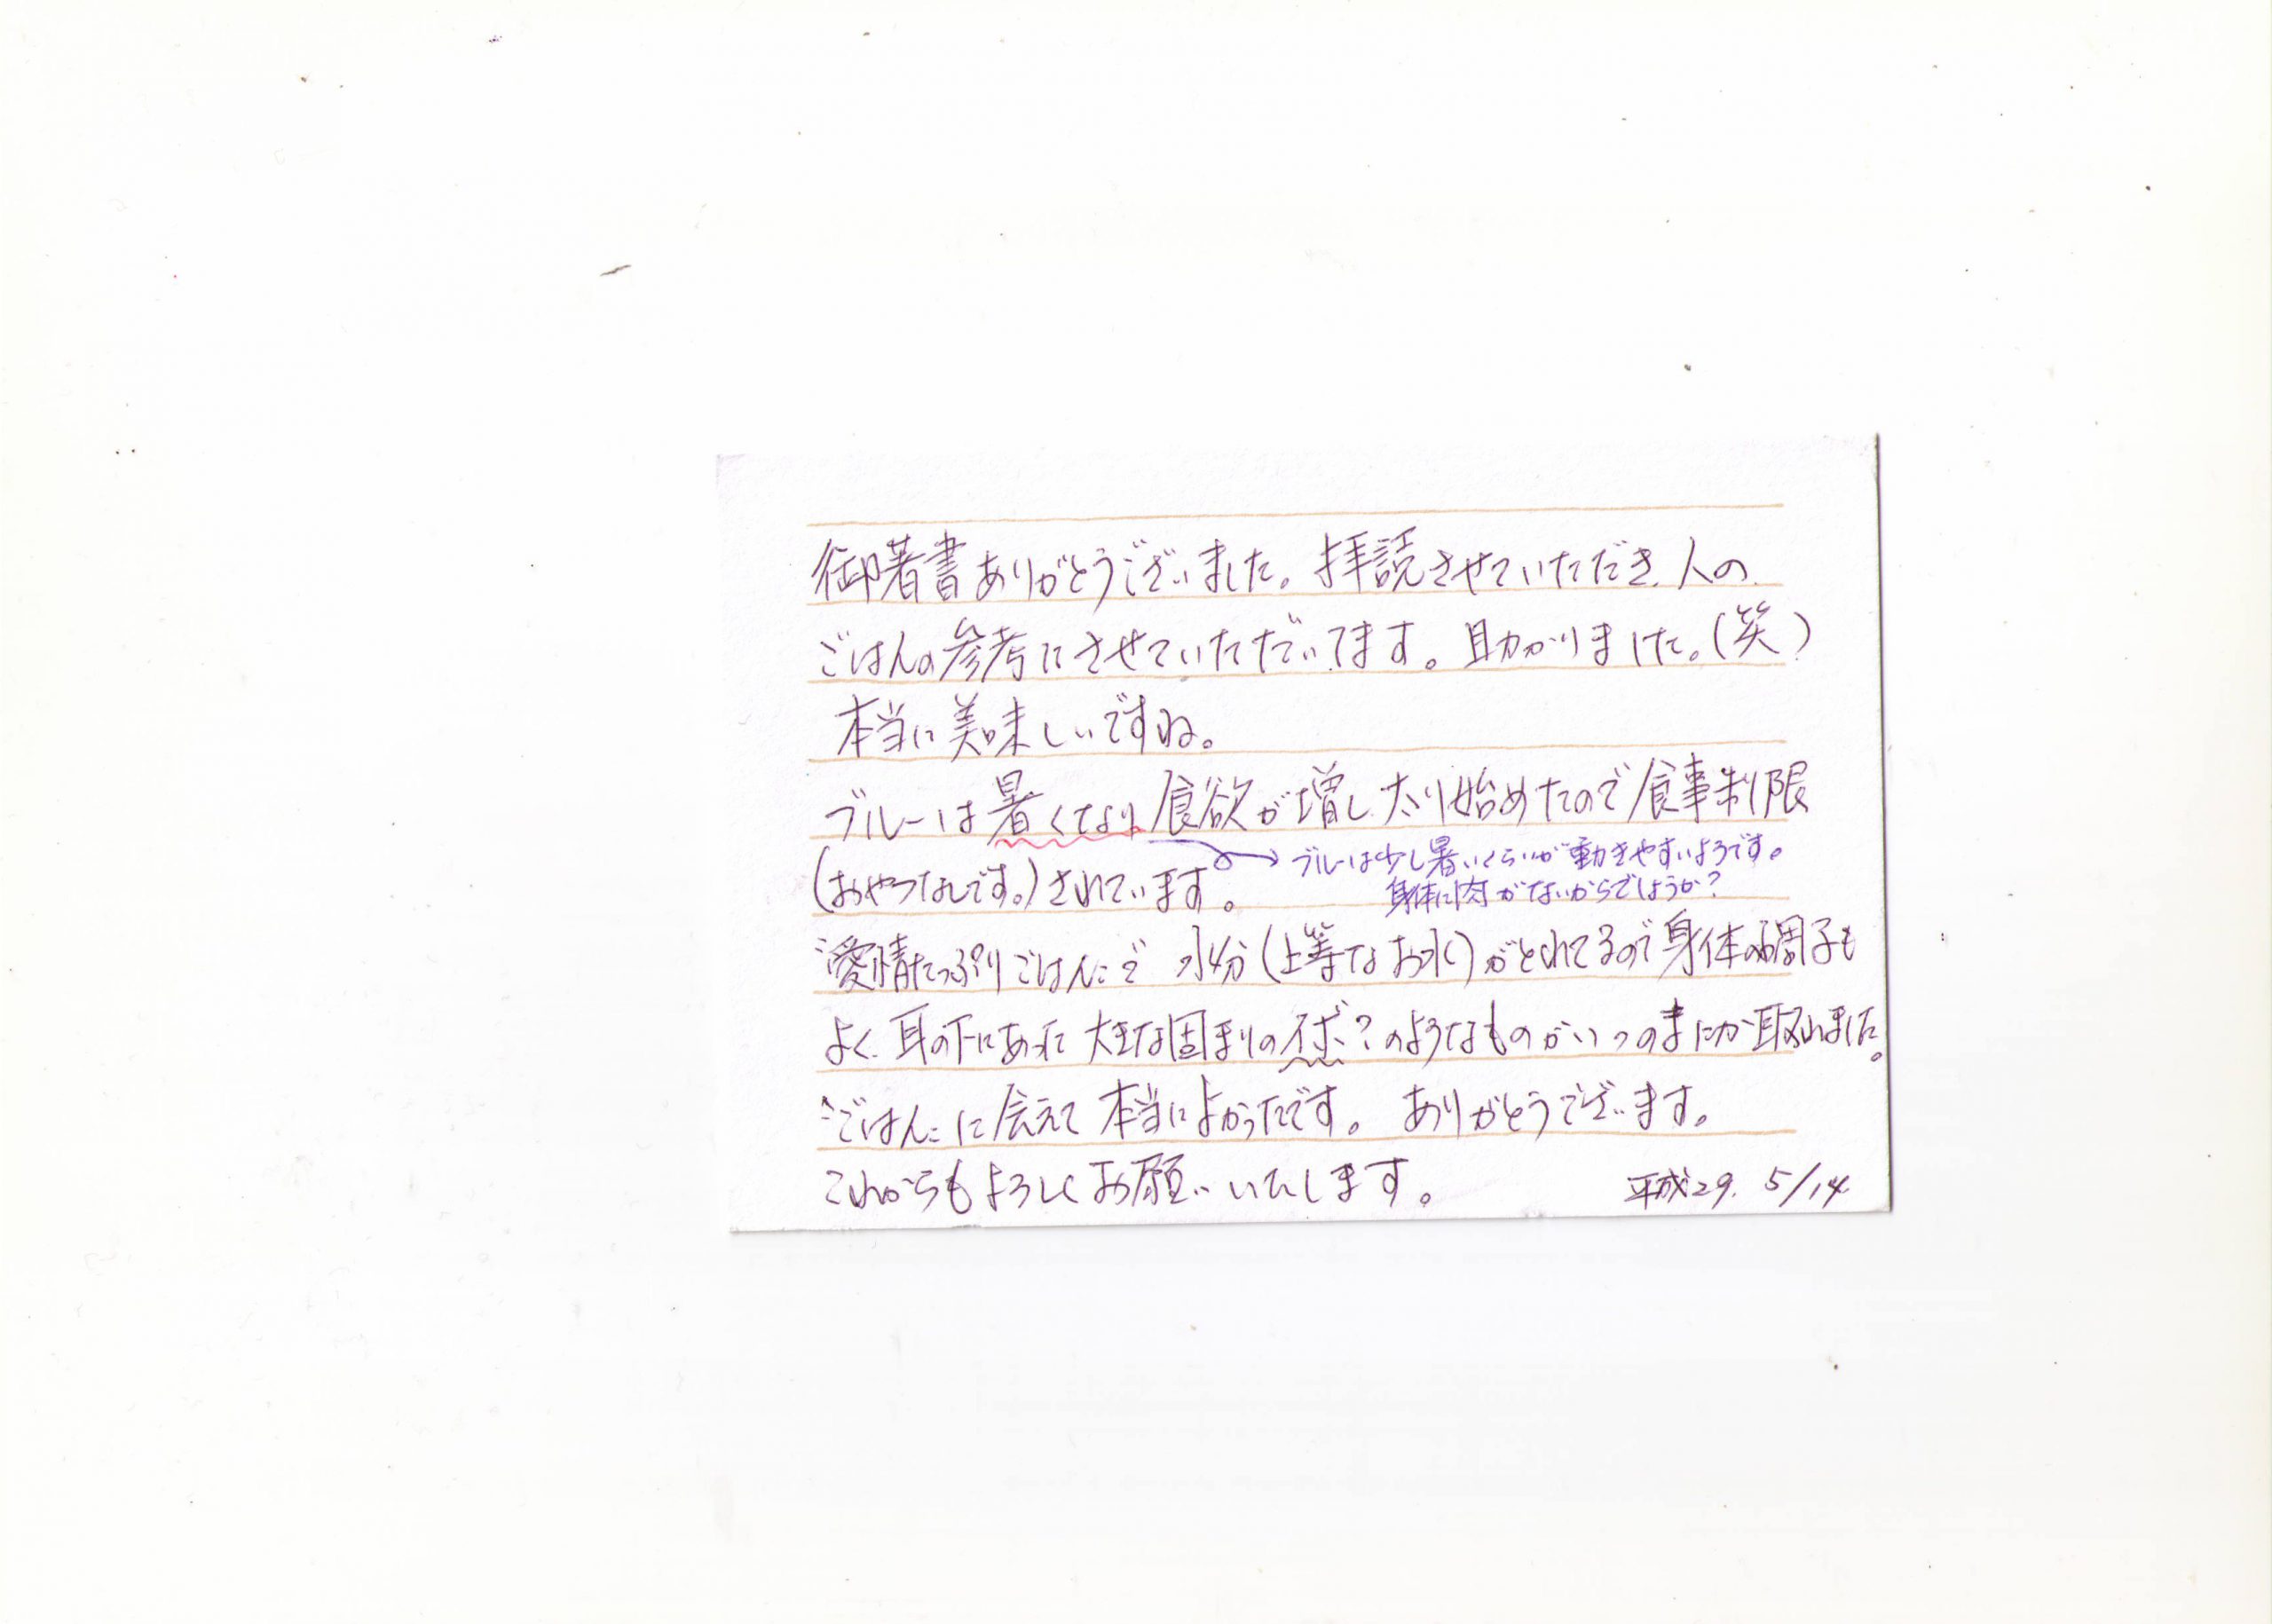 御著書ありがとうございました。拝読させていただき、人の
ごはんの参考にさせていただいてます。助かりました。(笑)
本当に美味しいですね。
ブルーは暑くなり食欲が増し太り始めたので食事制限
(おやつなしです。)されています。
→ブルーは少し暑いくらいが動きやすいようです。
身体に肉がないからでしょうか?
愛情たっぷりごはんで 水分(上等なお水)がとれてるので身体の調子も
よく、耳の下にあった大きな固まりのイボ?のようなものがいつのまにか取れました。
ごはんに会えて本当によかったです。ありがとうございます。
これからもよろしくお願いいたします。 平成29. 5/14